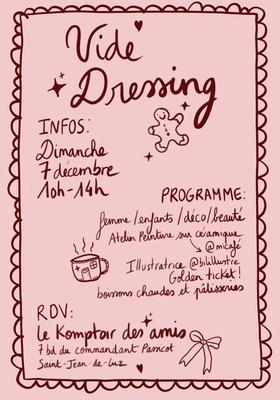 Vide
Dressing
INFOS:
Dimanche
7 décembre
10h-14h
PROGRAMME:
femme/enfants/déco/beauté
Atelier Peinture sur céramique
@micafé
Illustratrice @bilillustre
Golden ticket!
boissons chaudes et pâtisseries
RDV:
le Komptoir des amis
7 bd du commandant Passicot
Saint-Jean-de-Luz